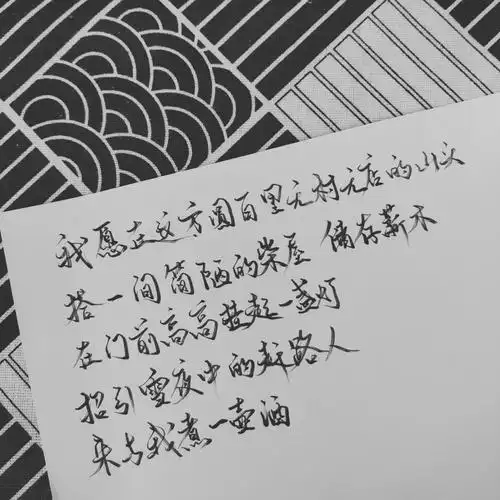 我愿在这方圆百里无村无店的山头
搭一间简陋的柴屋 储存薪木
在门前高高挂起一盏灯
招引雪夜中的赶路人
来与我煮一壶酒